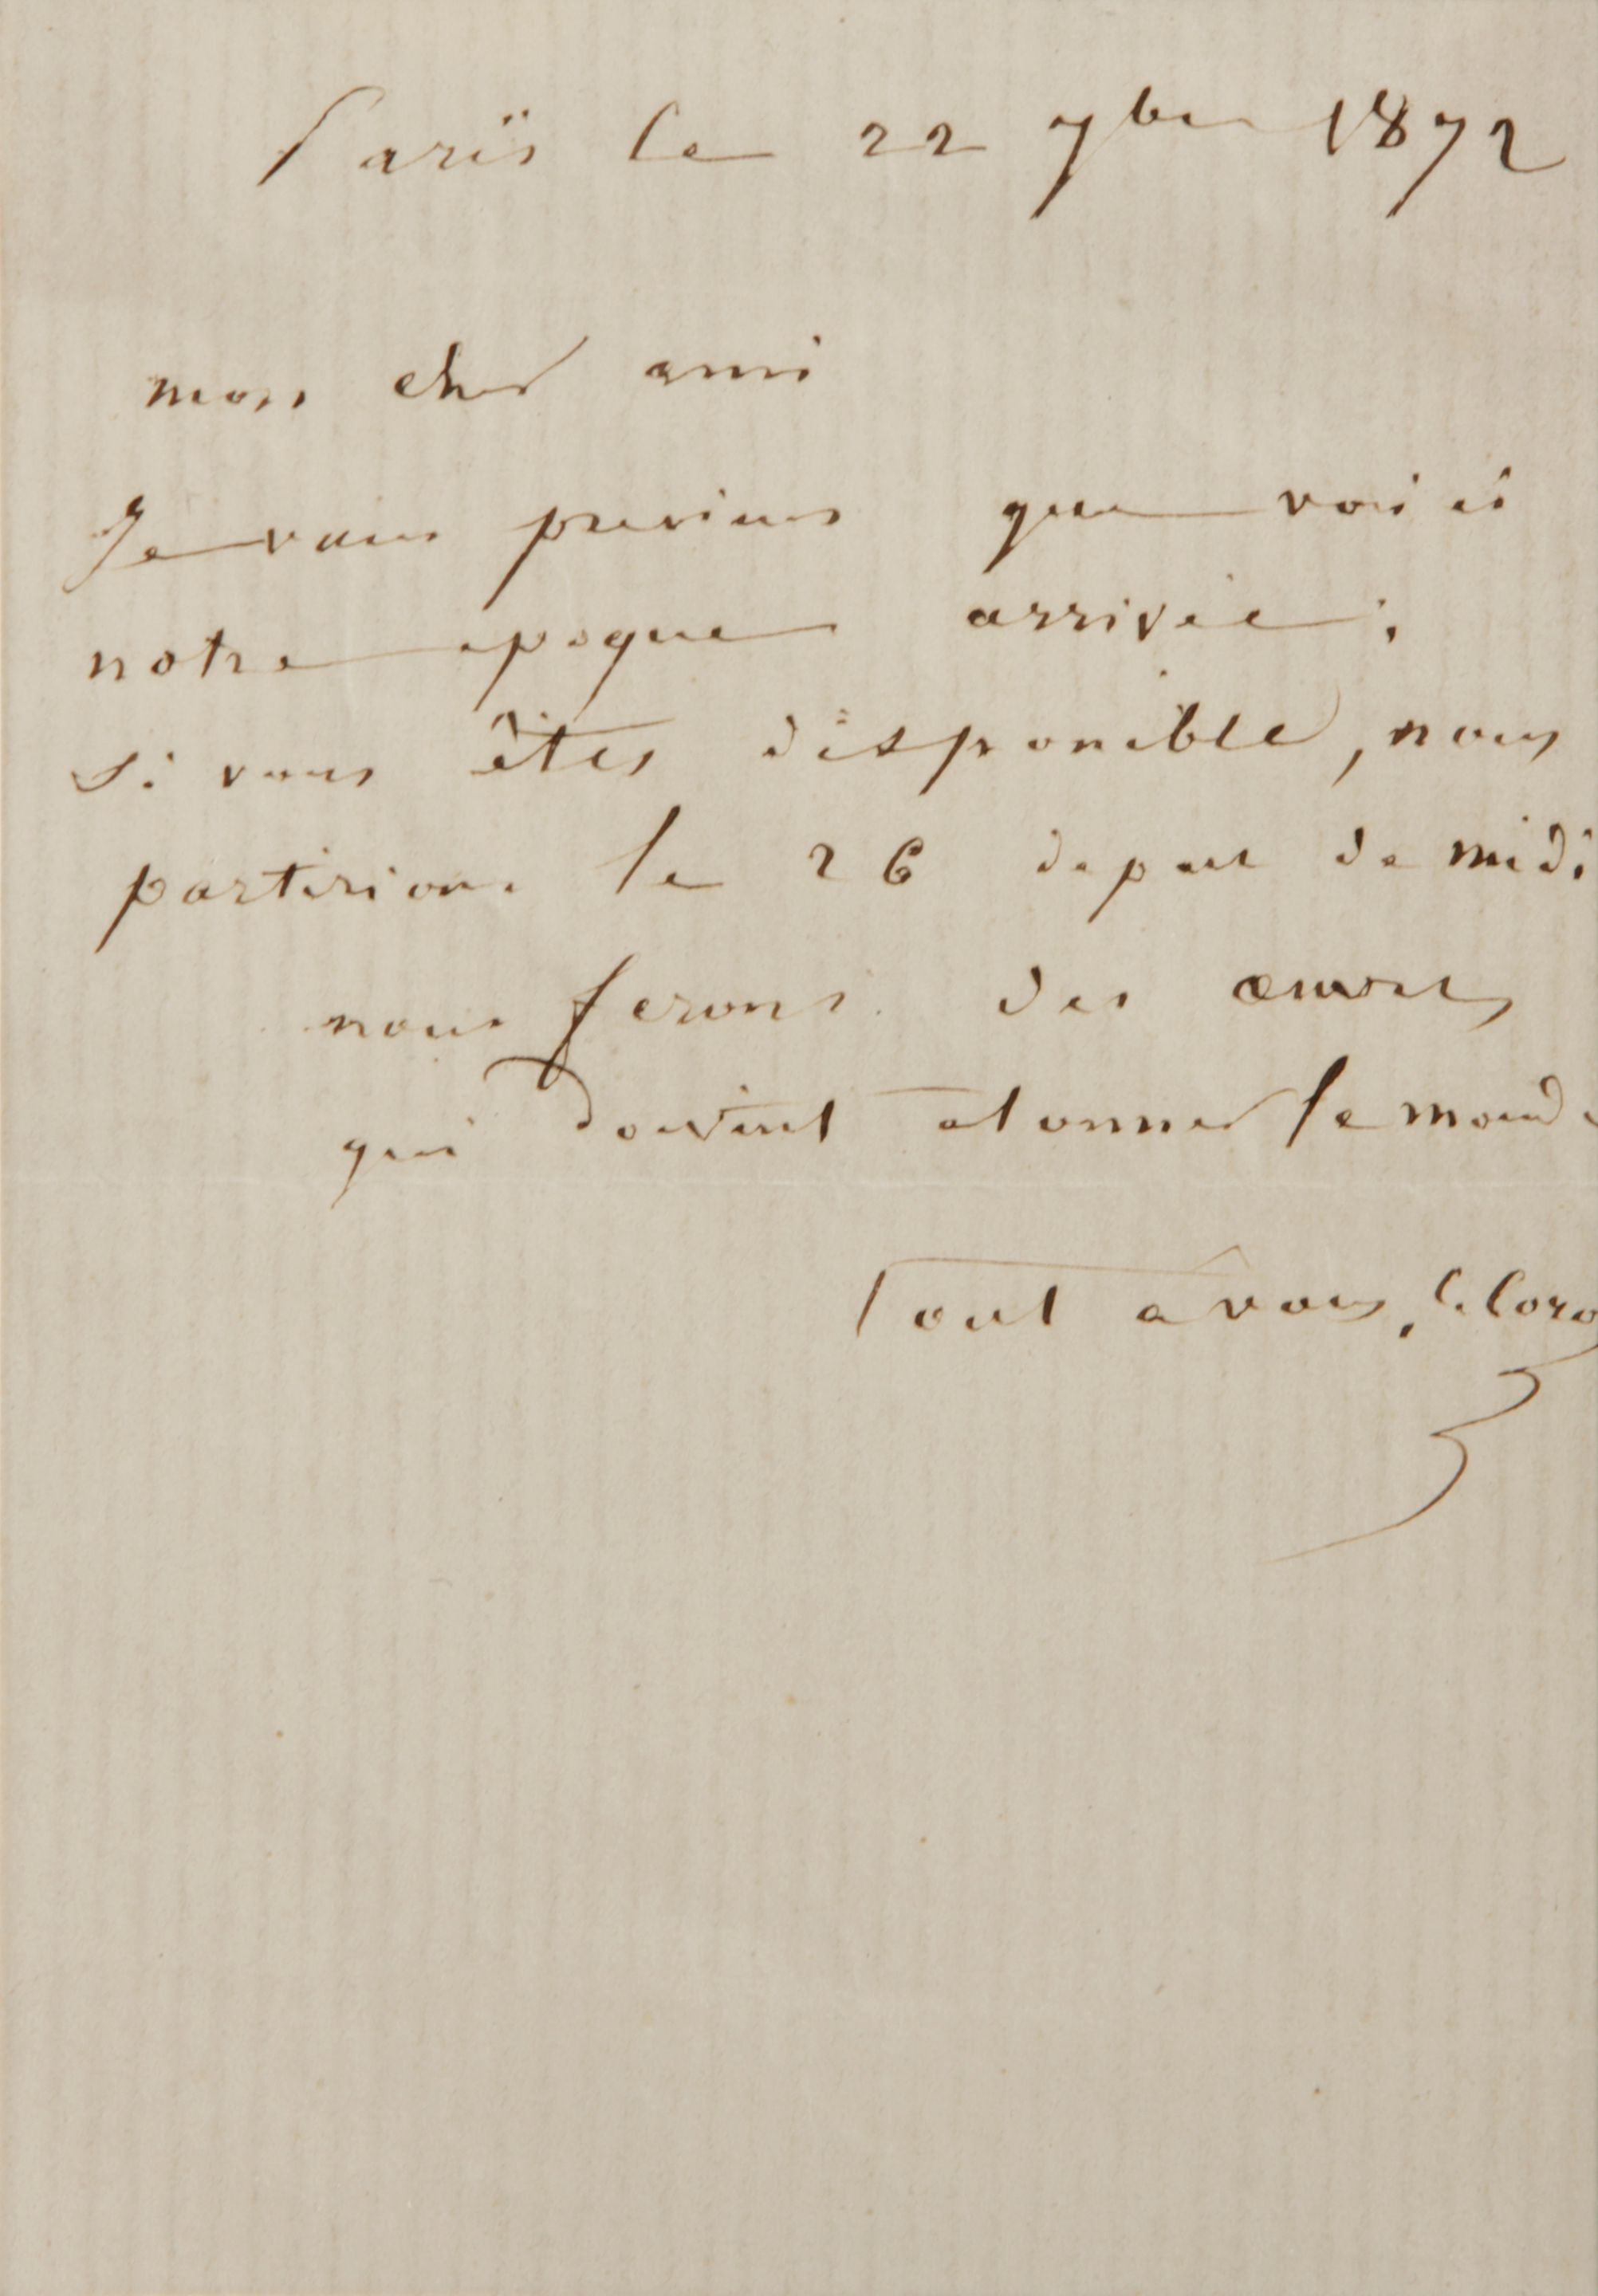 Paris le 22 7bre 1872
mon cher ami
Je vous previens que voici
notre epoque arrivée;
si vous êtes disponible, nous
partirions le 26 depart de midi
nous ferons des œuvres
qui doivent etonner le monde
Tout à vous, C. Corot